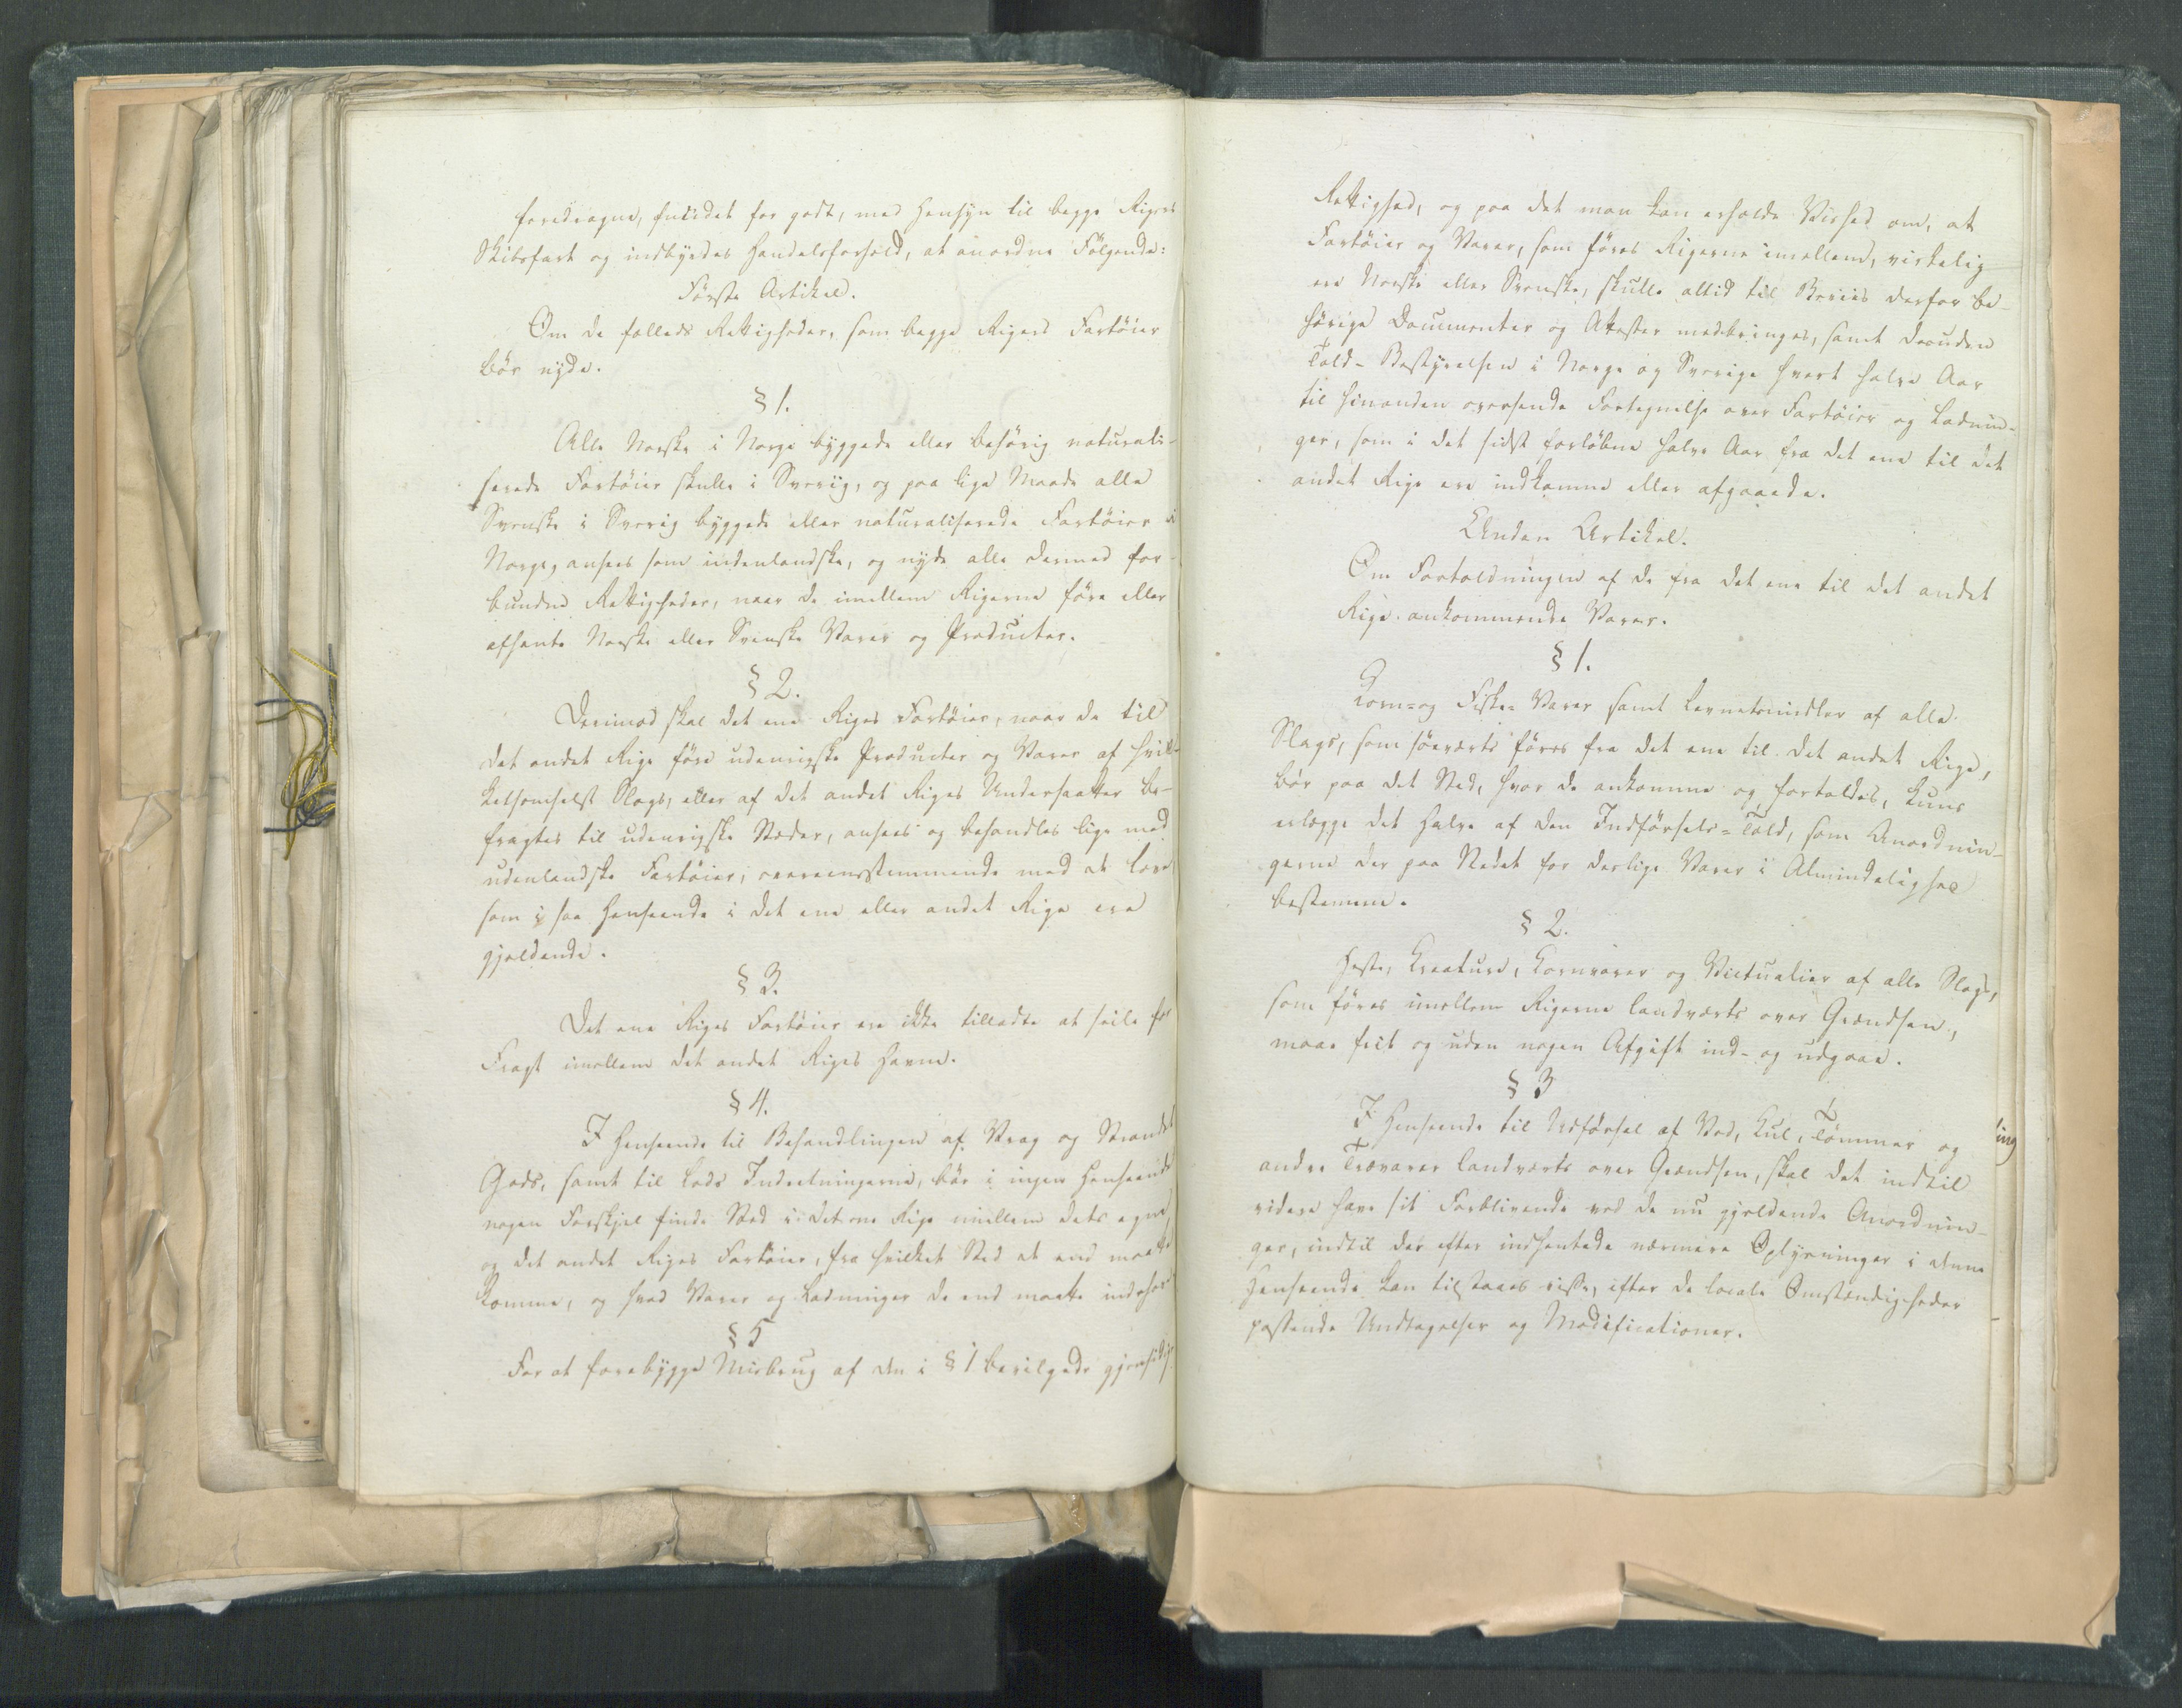 foredragne, fundet for godt, med Hensyn til begge Rigers
Skibsfart og indbyrdes Handelsforhold, at anordne Følgende:
Første Artikel.
Om de fælleds Rettigheder, som begge Rigers Fartöier
bör nyde.
§ 1.
Alle Norske i Norge byggede eller behörig naturali-
serede Fartöier skulle i Sverig, og paa lige Maade alle
Svenske i Sverig byggede eller naturaliserede Fartöier i
Norge, ansees som indenlandske, og nyde alle dermed for-
bundne Rettigheder, naar de imellem Rigerne føre eller
afhente Norske eller Svenske Varer og Producter.
§ 2.
Derimod skal det ene Riges Fartöier, naar de til
det andet Rige före udenrigske Producter og Varer af hvil-
ketsomhelst Slags, eller af det andet Riges Undersaatter be-
fragtes til udenrigske Stæder, ansees og behandles lige med
udenlandske Fartöier, overeensstemmende med de Love
som i saa Henseende i det ene eller andet Rige ere
gjeldende.
§ 3.
Det ene Riges Fartöier ere ikke tilladte at seile for
Fragt imellem det andet Riges Havne.
§ 4.
I Henseende til Behandlingen af Vrag og Strandet
Gods, samt til Lods Indretningerne, bör i ingen Henseende
nogen Forskjel finde Sted i det ene Rige imellem dets egne
og det andet Riges Fartöier, fra hvilket Sted de end maatte
komme, og hvad Varer og Ladninger de end maatte indehave
§ 5
For at forebygge Misbrug af den i § 1 bevilgede gjensidige
Rettighed, og paa det man kan erholde Vished om, at
Fartöier og Varer, som föres Rigerne imellem, virkelig
ere Norske eller Svenske, skulle altid til Beviis derfor be-
hörige Documenter og Attester medbringes, samt desuden
Told-Bestyrelsen i Norge og Sverige hvert halve Aar
til hinanden oversende Fortegnelse over Fartöier og Ladnin-
ger, som i det sidst forlöbne halve Aar fra det ene til det
andet Rige ere indkomne eller afgaaede.
Anden Artikel.
Om Fortoldningen af de fra det ene til det andet
Rige ankommende Varer.
§ 1.
Korn- og Fiske-Varer samt Levnetsmidler af alle
Slags, som söeværts föres fra det ene til det andet Rige,
bör paa det Sted, hvor de ankomme og fortoldes, kuns
erlægge det Halve af den Indförsels-Told, som Anordnin-
gerne der paa Stedet for deslige Varer i Almindelighed
bestemme.
§ 2.
Heste, Kreature, Kornvarer og Victualier af alle Slags,
som föres imellem Rigerne landværts over Grændsen,
maae frit og uden nogen Afgift ind- og udgaae.
§ 3
I Henseende til Udförsel af Ved, Kul, Tömmer og
andre Trævarer landværts over Grændsen, skal det indtil
videre have sit Forblivende ved de nu gjeldende Anordnin-
ger, indtil der efter indhentede nærmere Oplysninger i denne
Henseende kan tilstaaes visse, efter de locale Omstændigheder
passende Undtagelser og Modificationer.
ing